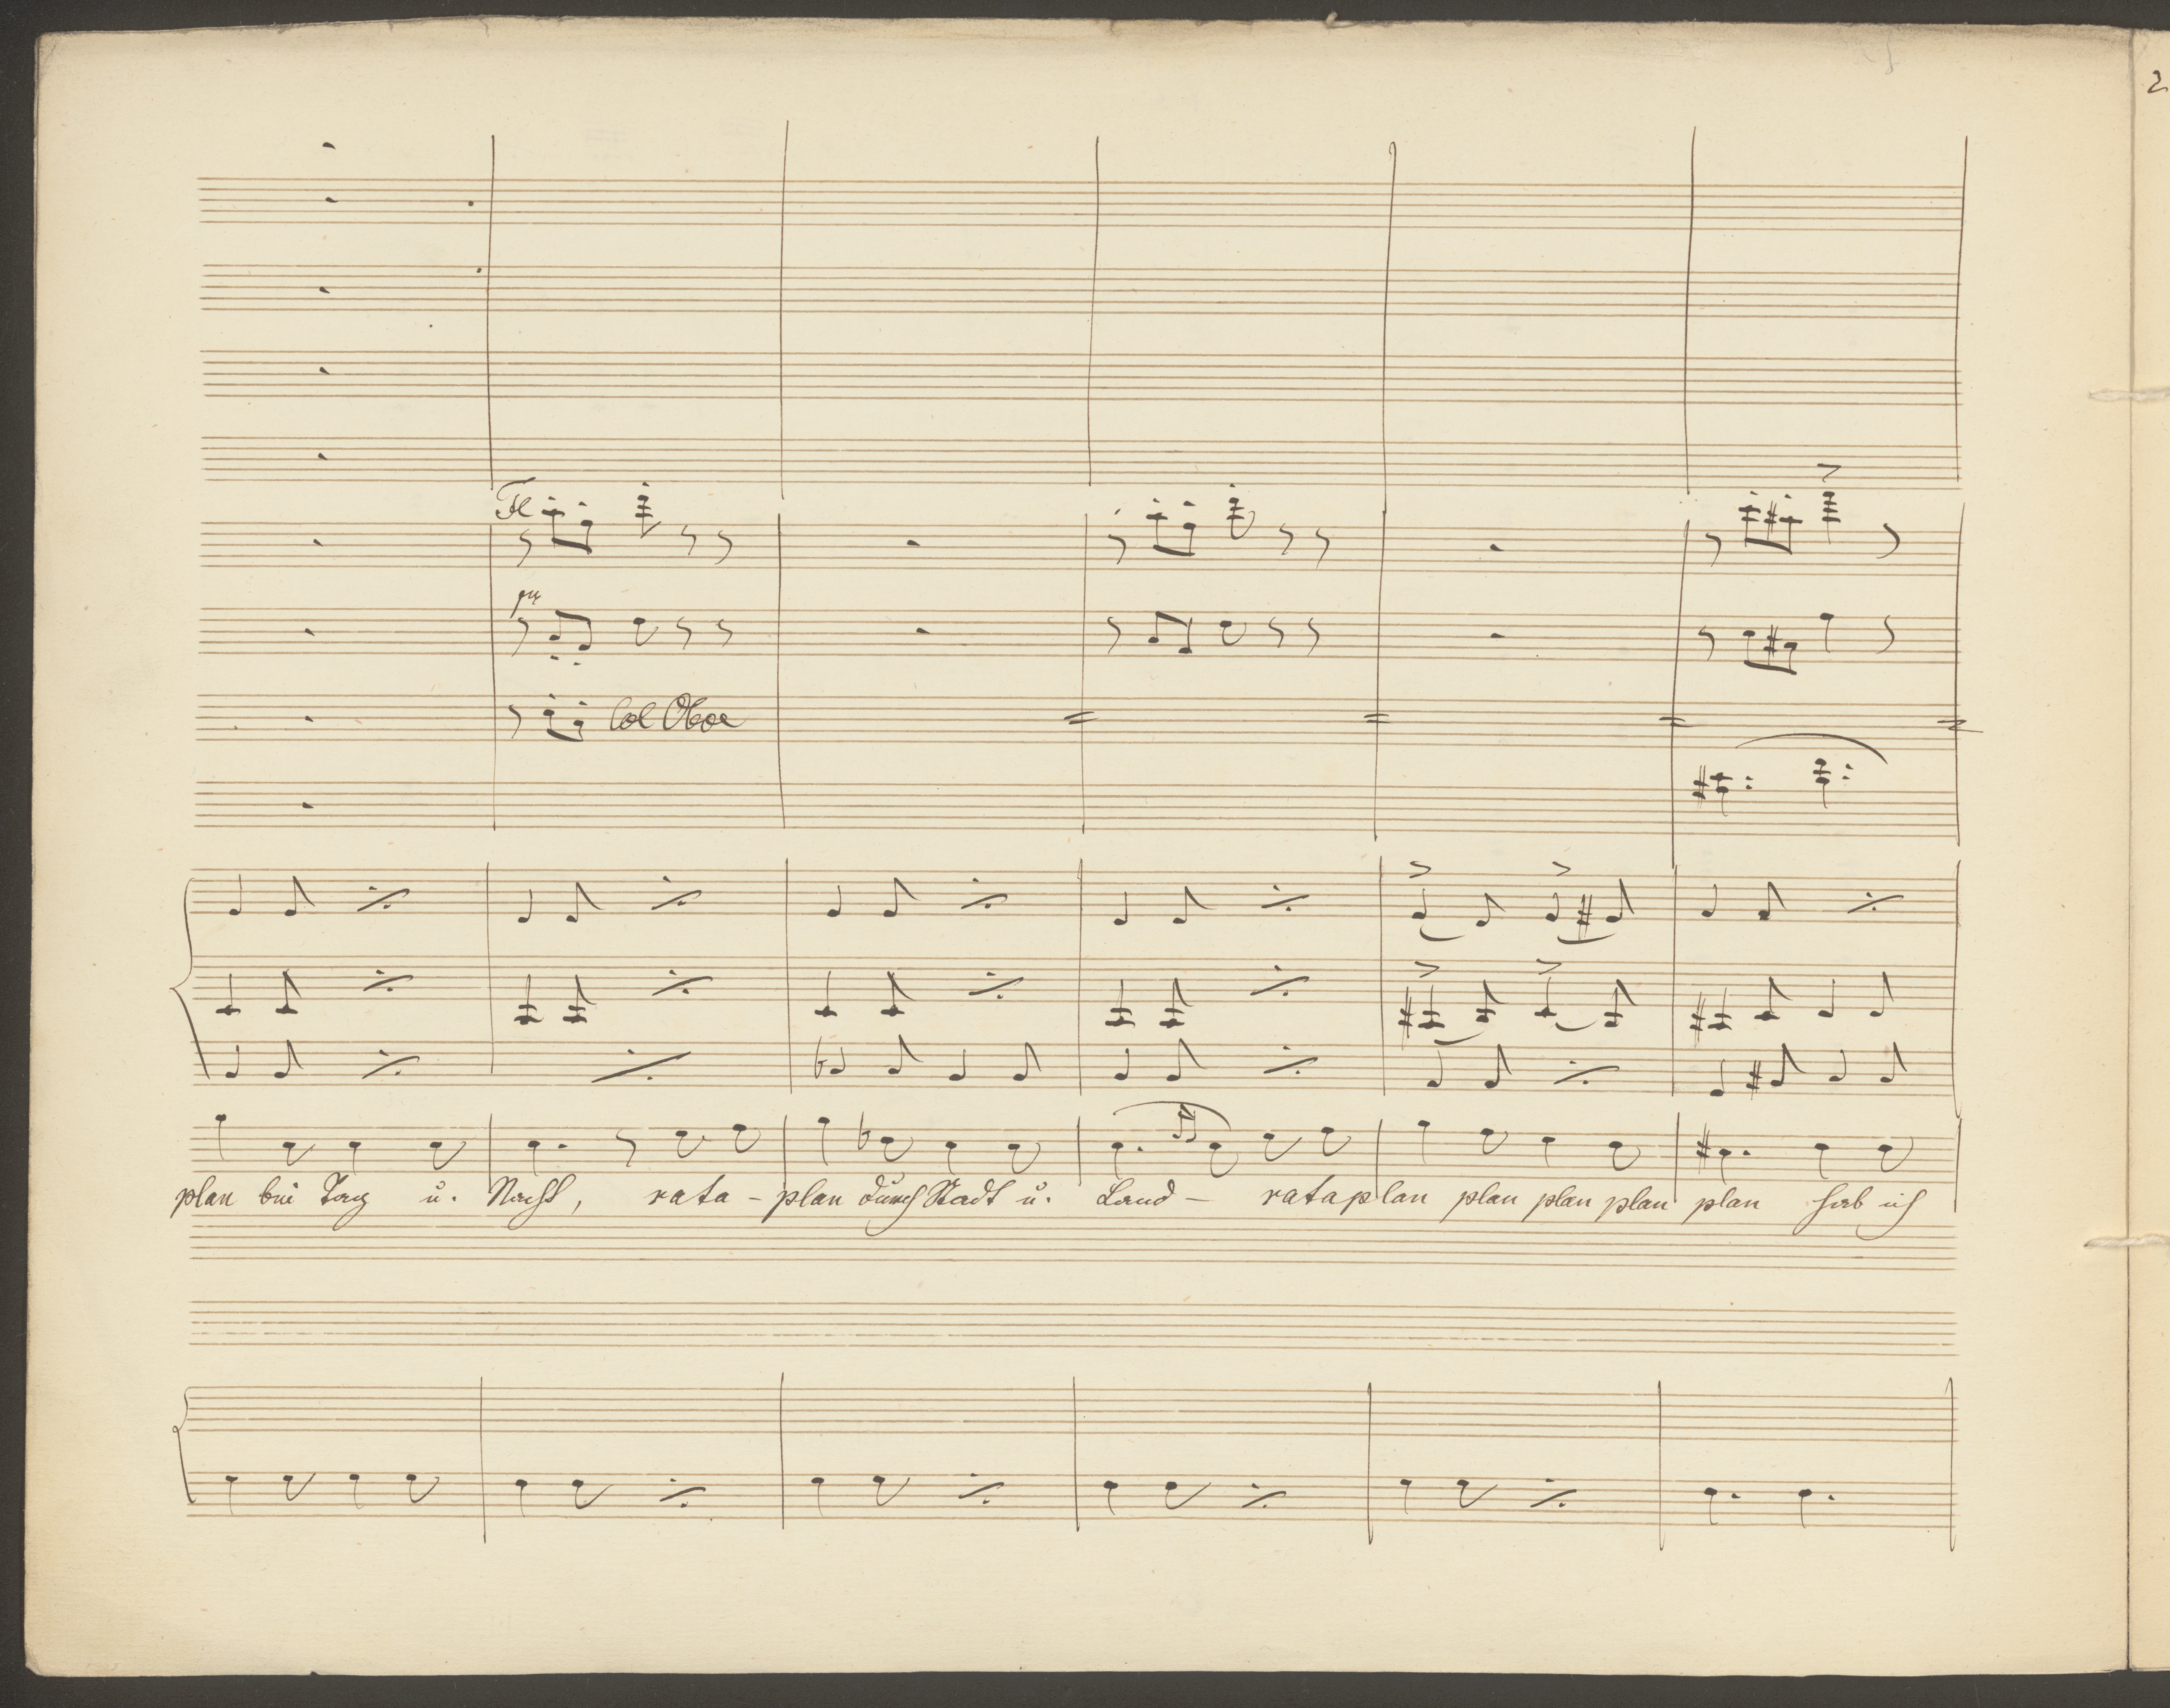 2
Fl
Col Oboe
plan bei Tag u. Nacht, rata - plan durch Stadt u. Land - rataplan plan plan plan plan hab ich